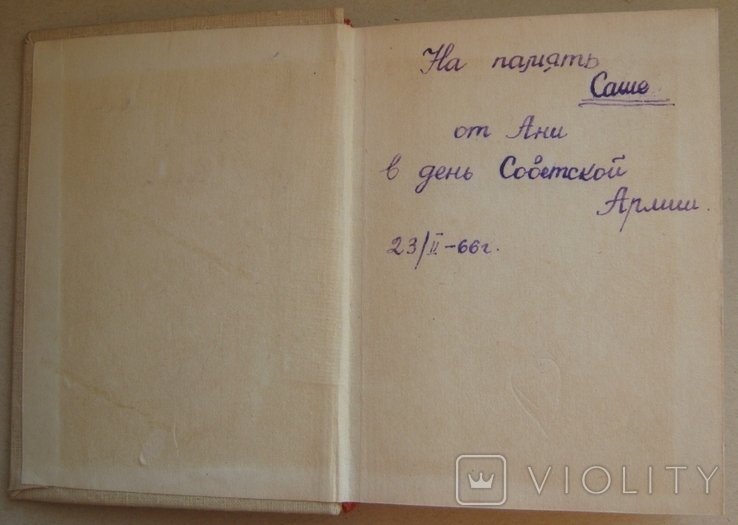 На память
Саше.
от Ани
в день Советской
Армии.
23/II-66г.
VIOLITY